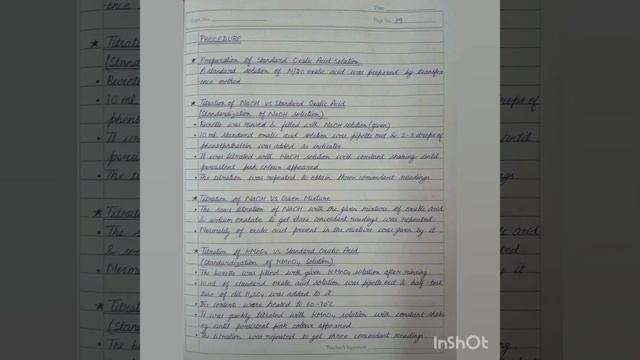 Date
Expt. No.
Page No. 19
PROCEDURE
★ Preparation of Standard Oxalic Acid Solution
A standard solution of M/20 oxalic acid was prepared by transfer-
ence method
★ Titration of NaOH vs Standard Oxalic Acid
(Standardization of NaOH solution)
• Burette was rinsed & filled with NaOH solution (given)
• 10 ml standard oxalic acid solution was pipette out & 2-3 drops of
phenolphthalein was added as indicator
• It was titrated with NaOH solution with constant shaking until
persistent pink colour appeared
• The titration was repeated to obtain three concordant readings
★ Titration of NaOH vs Given Mixture
• The same titration of NaOH with the given mixture of oxalic acid
& sodium oxalate to get three concordant readings was repeated
• Normality of oxalic acid present in the mixture was given by it
★ Titration of KMnO₄ vs Standard Oxalic Acid
(Standardization of KMnO₄ solution)
• The burette was filled with given KMnO₄ solution after rinsing
• 10 ml of standard oxalic acid solution was pipette out & half test
tube of dil. H₂SO₄ was added to it
• The contents were heated to 60-70°C
• It was quickly titrated with KMnO₄ solution with constant shak-
ing until persistent pink colour appeared
• The titration was repeated to get three concordant readings
Teacher's Signature
InShOt